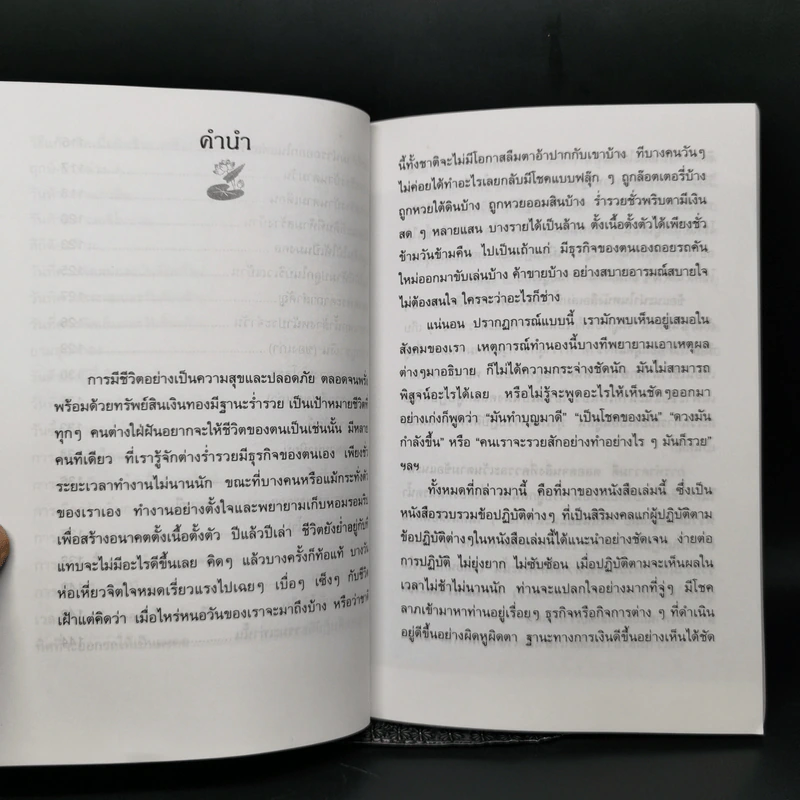 คำนำ
การมีชีวิตอย่างเป็นความสุขและปลอดภัย ตลอดจน
พร้อมด้วยทรัพย์สินเงินทองมีฐานะร่ำรวย เป็นเป้าหมายชีวิต
ทุกๆ คนต่างใฝ่ฝันอยากจะให้ชีวิตของตนเป็นเช่นนั้น มีหลาย
คนทีเดียว ที่เรารู้จักต่างร่ำรวยมีธุรกิจของตนเอง เพียงชั่ว
ระยะเวลาทำงานไม่นานนัก ขณะที่บางคนหรือแม้กระทั่งตัว
ของเราเอง ทำงานอย่างตั้งใจและพยายามเก็บหอมรอมริบ
เพื่อสร้างอนาคตตั้งเนื้อตั้งตัว ปีแล้วปีเล่า ชีวิตยังย่ำอยู่กับที่
แทบจะไม่มีอะไรดีขึ้นเลย คิดๆ แล้วบางครั้งก็ท้อแท้ บางวัน
ห่อเหี่ยวจิตใจหมดเรี่ยวแรงไปเฉยๆ เบื่อๆ เซ็งๆ กับชีวิต
เฝ้าแต่คิดว่า เมื่อไหร่หนอวันของเราจะมาถึงบ้าง หรือว่าชาติ
นี้ทั้งชาติจะไม่มีโอกาสลืมตาอ้าปากกับเขาบ้าง ทีบางคนวันๆ
ไม่ค่อยได้ทำอะไรเลยกลับมีโชคแบบฟลุ๊ก ๆ ถูกล๊อตเตอรี่บ้าง
ถูกหวยใต้ดินบ้าง ถูกหวยออมสินบ้าง ร่ำรวยชั่วพริบตามีเงิน
สด ๆ หลายแสน บางรายได้เป็นล้าน ตั้งเนื้อตั้งตัวได้เพียงชั่ว
ข้ามวันข้ามคืน ไปเป็นเถ้าแก่ มีธุรกิจของตนเองถอยรถคัน
ใหม่ออกมาขับเล่นบ้าง ค้าขายบ้าง อย่างสบายอารมณ์สบายใจ
ไม่ต้องสนใจ ใครจะว่าอะไรก็ช่าง
แน่นอน ปรากฏการณ์แบบนี้ เรามักพบเห็นอยู่เสมอใน
สังคมของเรา เหตุการณ์ทำนองนี้บางทีพยายามเอาเหตุผล
ต่างๆมาอธิบาย ก็ไม่ได้ความกระจ่างชัดนัก มันไม่สามารถ
พิสูจน์อะไรได้เลย หรือไม่รู้จะพูดอะไรให้เห็นชัดๆออกมา
อย่างเก่งก็พูดว่า “มันทำบุญมาดี” “เป็นโชคของมัน” “ดวงมัน
กำลังขึ้น” หรือ “คนเราจะรวยสักอย่างทำอย่างไร ๆ มันก็รวย”
ฯลฯ
ทั้งหมดที่กล่าวมานี้ คือที่มาของหนังสือเล่มนี้ ซึ่งเป็น
หนังสือรวบรวมข้อปฏิบัติต่างๆ ที่เป็นสิริมงคลแก่ผู้ปฏิบัติตาม
ข้อปฏิบัติต่างๆในหนังสือเล่มนี้ได้แนะนำอย่างชัดเจน ง่ายต่อ
การปฏิบัติ ไม่ยุ่งยาก ไม่ซับซ้อน เมื่อปฏิบัติตามจะเห็นผลใน
เวลาไม่ช้าไม่นานนัก ท่านจะแปลกใจอย่างมากที่จู่ๆ มีโชค
ลาภเข้ามาหาท่านอยู่เรื่อยๆ ธุรกิจหรือกิจการต่าง ๆ ที่ดำเนิน
อยู่ดีขึ้นอย่างผิดหูผิดตา ฐานะทางการเงินดีขึ้นอย่างเห็นได้ชัด